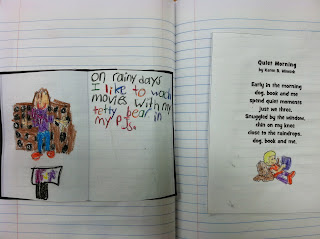 on rainy days
I like to wach
movies with my
tetty bear in
my pjs.
Quiet Morning
by Karen B. Winnick
Early in the morning
dog, book and me
spend quiet moments
just we three.
Snuggled by the window,
chin on my knee
close to the raindrops,
dog, book and me.